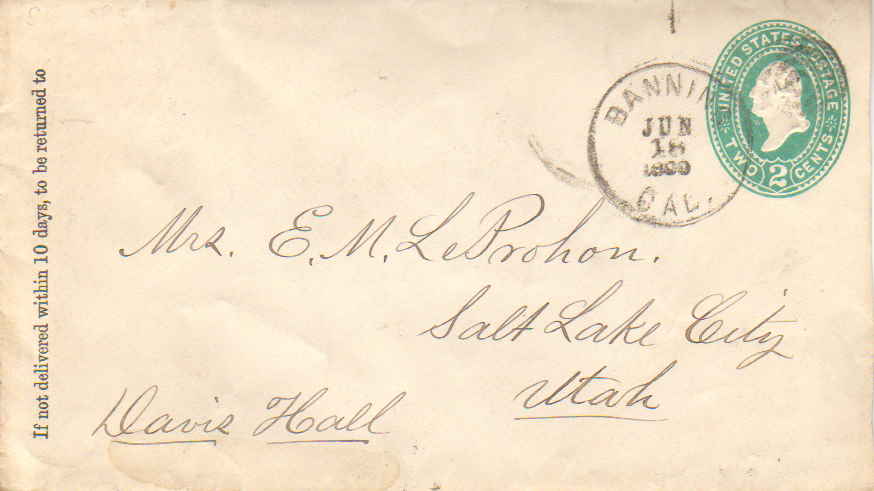 If not delivered within 10 days, to be returned to
UNITED STATES POSTAGE
TWO 2 CENTS
JUN
18
CAL.
Mrs. E. M. LeProhon.
Salt Lake City
Utah
Davis Hall